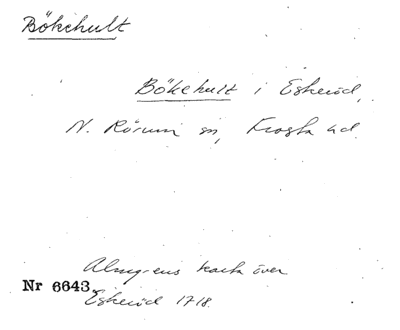 Bökehult
Bökehult i Eskeröd,
N. Rörum sn, Frosta hd.
Almgrens karta över
Nr 6643.
Eskeröd 1718.